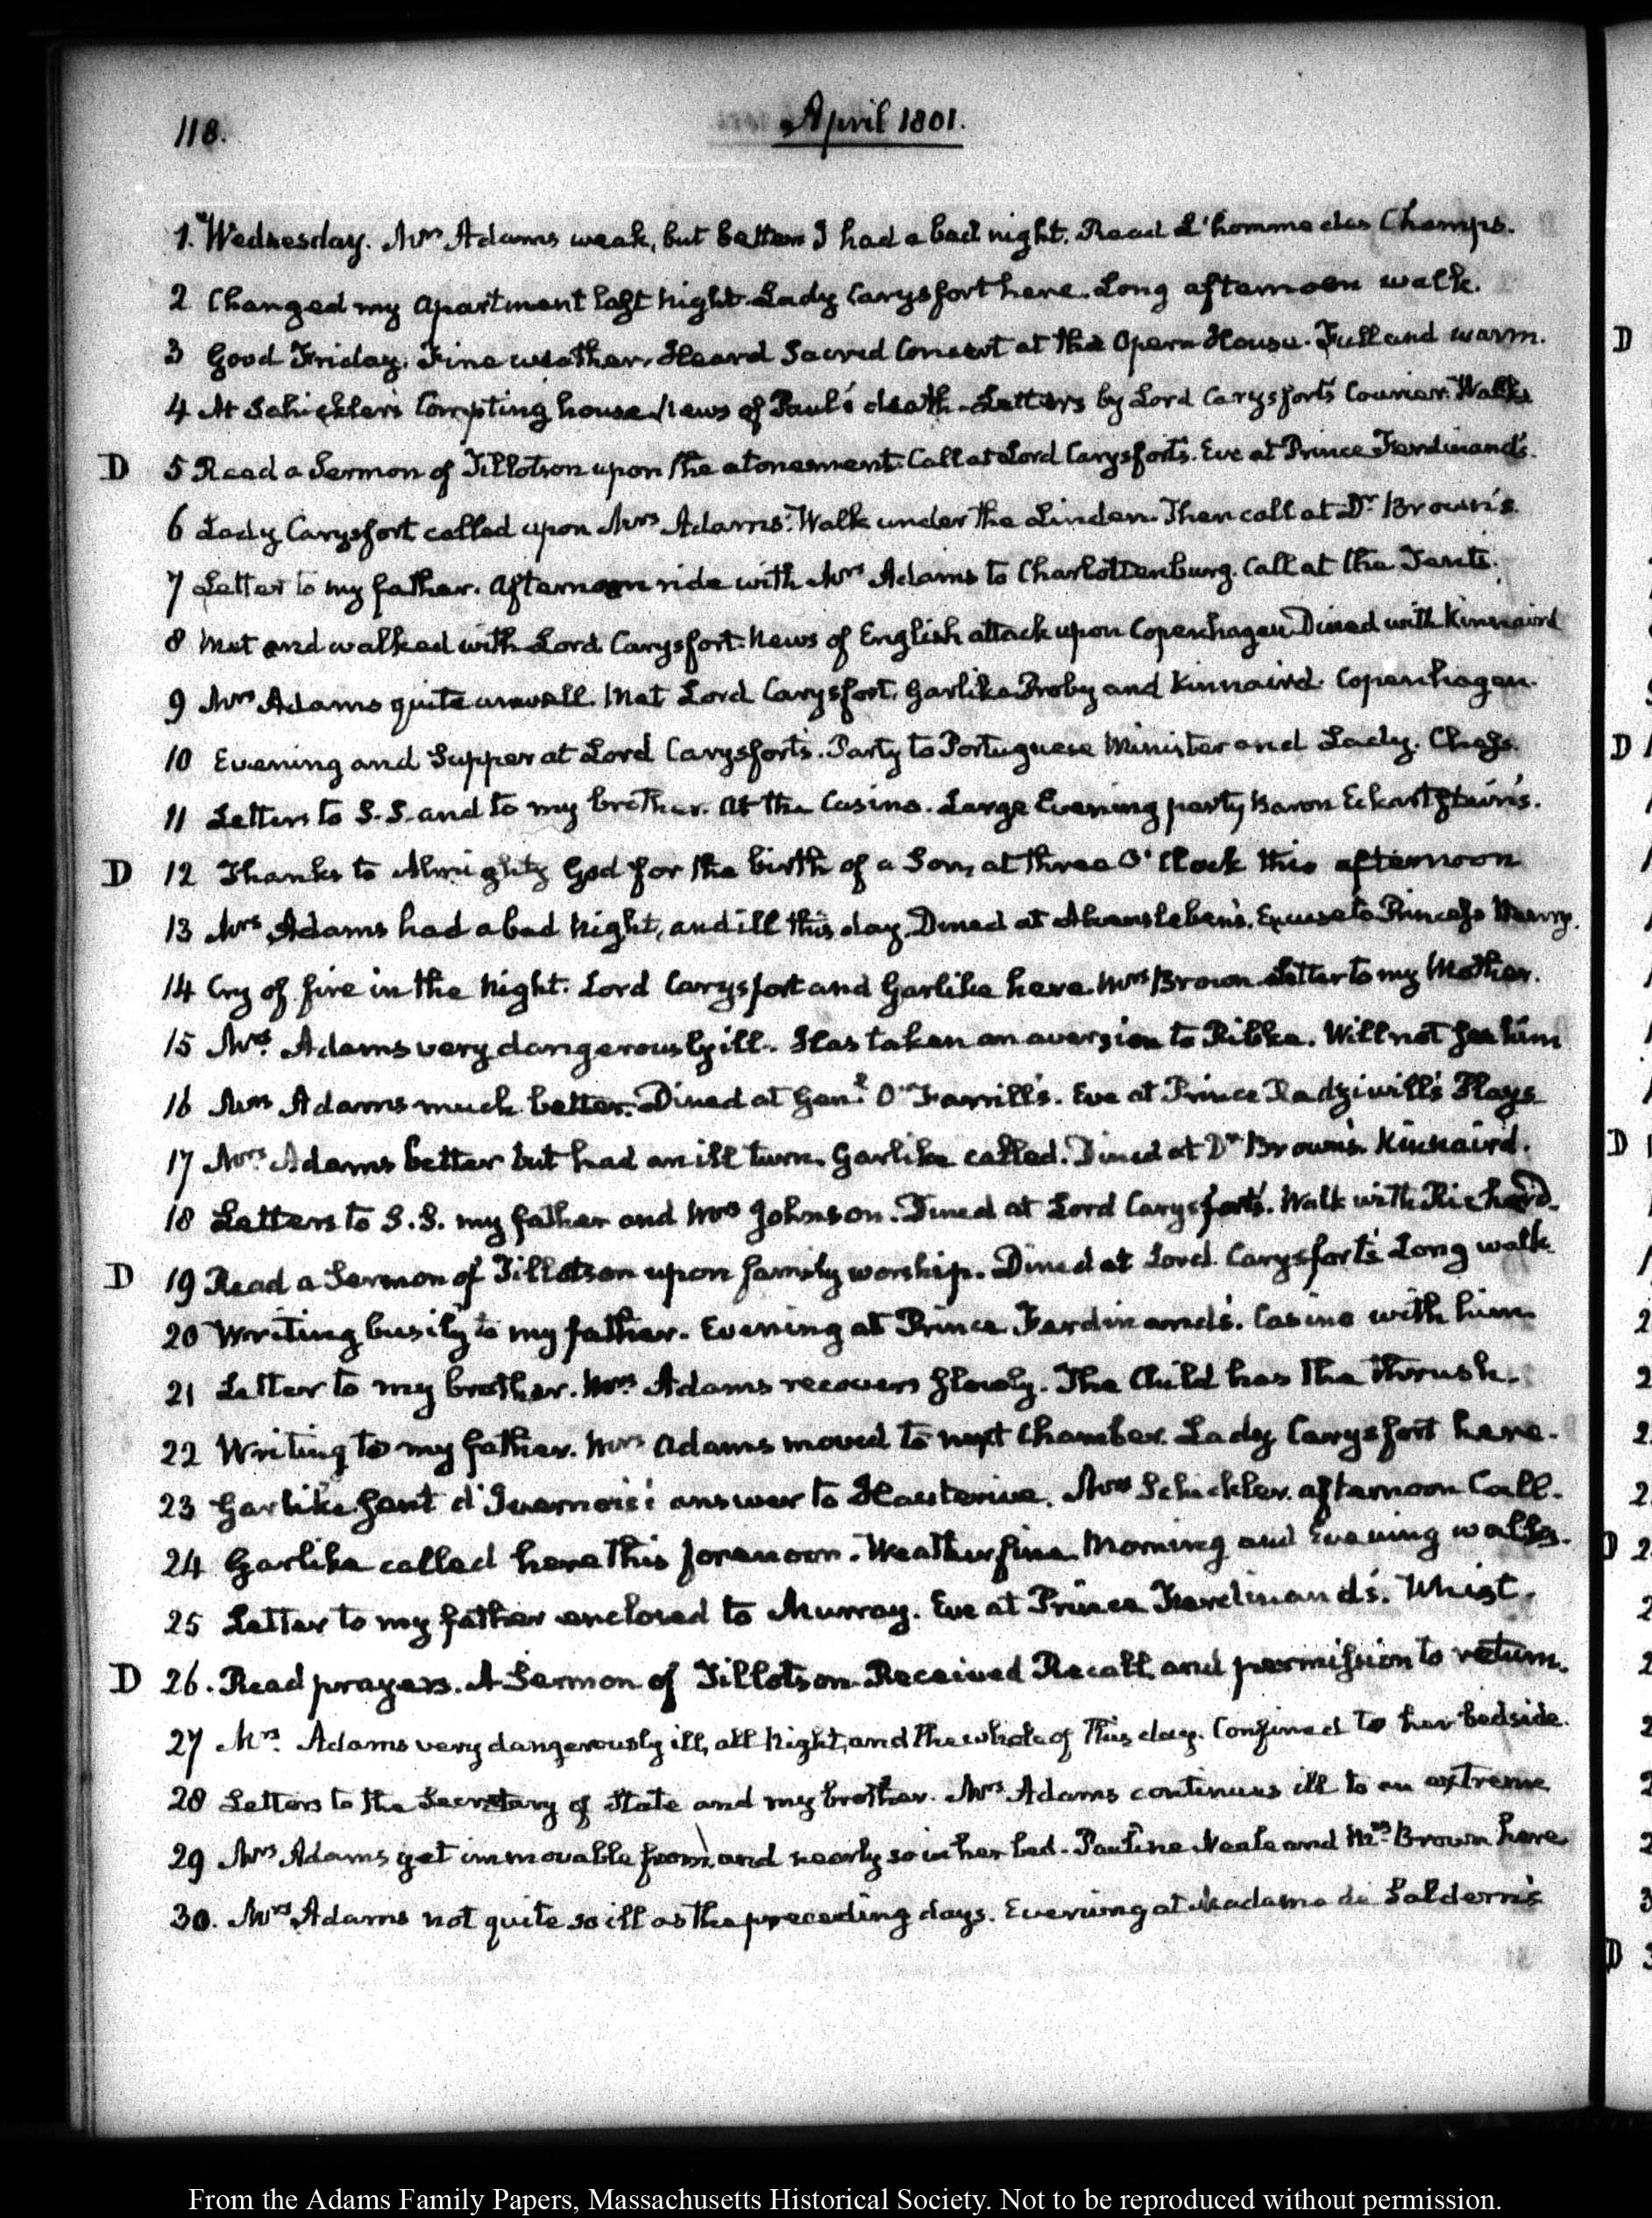 118.
April 1801.
1. Wednesday. Mrs Adams weak, but better I had a bad night. Read L'homme des Champs.
2 Changed my apartment last night. Lady Carysfort here. Long afternoon walk.
3 Good Friday. Fine weather. Heard Sacred Concert at the Opera House. Full and warm.
4 At Schickler's Compting house News of Paul's death. Letters by Lord Carysfort's Courier. Walks
D 5 Read a Sermon of Tillotson upon the atonement. Call at Lord Carysfort's. Eve at Prince Ferdinand's.
6 Lady Carysfort called upon Mrs Adams. Walk under the Linden. Then call at Dr Brown's.
7 Letter to my father. Afternoon ride with Mrs Adams to Charlottenburg. Call at the Tents.
8 Met and walked with Lord Carysfort. News of English attack upon Copenhagen Dined with Kinnaird
9 Mrs Adams quite unwell. Met Lord Carysfort, Garlike Proby and Kinnaird. Copenhagen.
10 Evening and Supper at Lord Carysfort's. Party to Portuguese Minister and Lady. Chess.
11 Letters to S.S. and to my brother. At the Casino. Large Evening party Baron Eckartstein's.
D 12 Thanks to Almighty God for the birth of a Son, at three O'Clock this afternoon
13 Mrs Adams had a bad night, and ill this day. Dined at Alvensleben's. Excuse to Princess Henry.
14 Cry of fire in the night. Lord Carysfort and Garlike here. Mrs Brown. Letter to my Mother.
15 Mrs Adams very dangerously ill. Has taken an aversion to Ribke. Will not see him
16 Mrs Adams much better. Dined at Genl. O'Farrill's. Eve at Prince Radziwill's Plays
17 Mrs Adams better but had an ill turn. Garlike called. Dined at Dr Brown's. Kinnaird.
18 Letters to S.S. my father and Mrs Johnson. Dined at Lord Carysfort's. Walk with Richard.
D 19 Read a Sermon of Tillotson upon family worship. Dined at Lord Carysfort's Long walk
20 Writing busily to my father. Evening at Prince Ferdinand's. Casino with him
21 Letter to my brother. Mrs Adams recovers slowly. The Child has the thrush.
22 Writing to my father. Mrs Adams moved to next Chamber. Lady Carysfort here.
23 Garlike sent d'Ivernois's answer to Hauterive. Mrs Schickler. afternoon Call.
24 Garlike called here this forenoon. Weather fine. Morning and Evening walks.
25 Letter to my father enclosed to Murray. Eve at Prince Ferdinand's. Whist.
D 26. Read prayers. A Sermon of Tillotson. Received Recall, and permission to return.
27 Mrs. Adams very dangerously ill, all night, and the whole of this day. Confined to her bedside.
28 Letters to the Secretary of State and my brother. Mrs Adams continues ill to an extreme
29 Mrs Adams yet immovable from, and nearly so in her bed. Pauline Neale and Mrs Brown here.
30. Mrs Adams not quite so ill as the preceding days. Evening at Madame de Saldern's
From the Adams Family Papers, Massachusetts Historical Society. Not to be reproduced without permission.